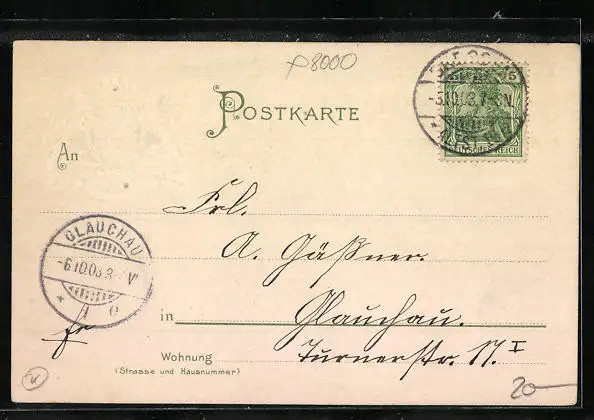 p8000
POSTKARTE
5
-5.10.03.7-8N.
DEUTSCHES REICH
An
Frl.
A. Gäßner.
GLAUCHAU
-6.10.03.8- V
* e
in Glauchau.
fr
Wohnung Turnerstr. 17. I
(Strasse und Hausnummer)
V
20-